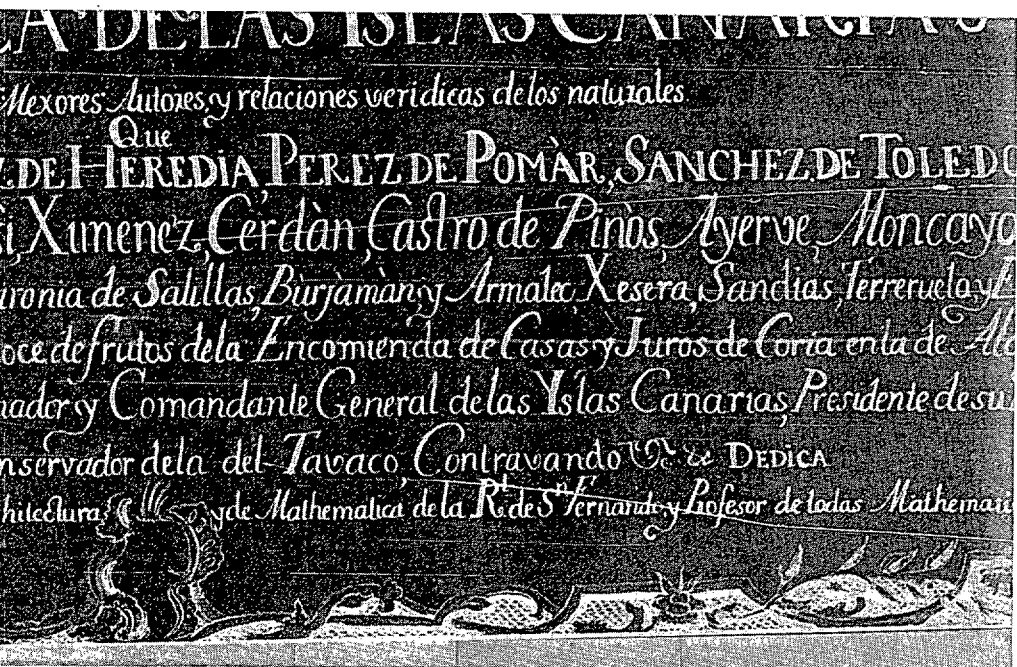 LA DE LAS ISLAS CANARIAS
Mexores Autores, y relaciones veridicas delos naturales.
Que
Z DE HEREDIA, PEREZ DE POMÀR, SANCHEZ DE TOLEDO
Ximenez, Cerdàn, Castro de Pinòs, Ayerve, Moncayo
aronia de Salillas, Burjàmàn, y Armalec, Xesera, Sandias, Terreruela, y
oce de frutos dela Encomienda de Casas y Juros de Coria en la de Alc
nador, y Comandante General delas Yslas Canarias, Presidente de su
nservador dela del Tavaco, Contravando &c. DEDICA
chitectura, y de Mathematica de la Rl. de Sn. Fernando, y Profesor de todas Mathemati